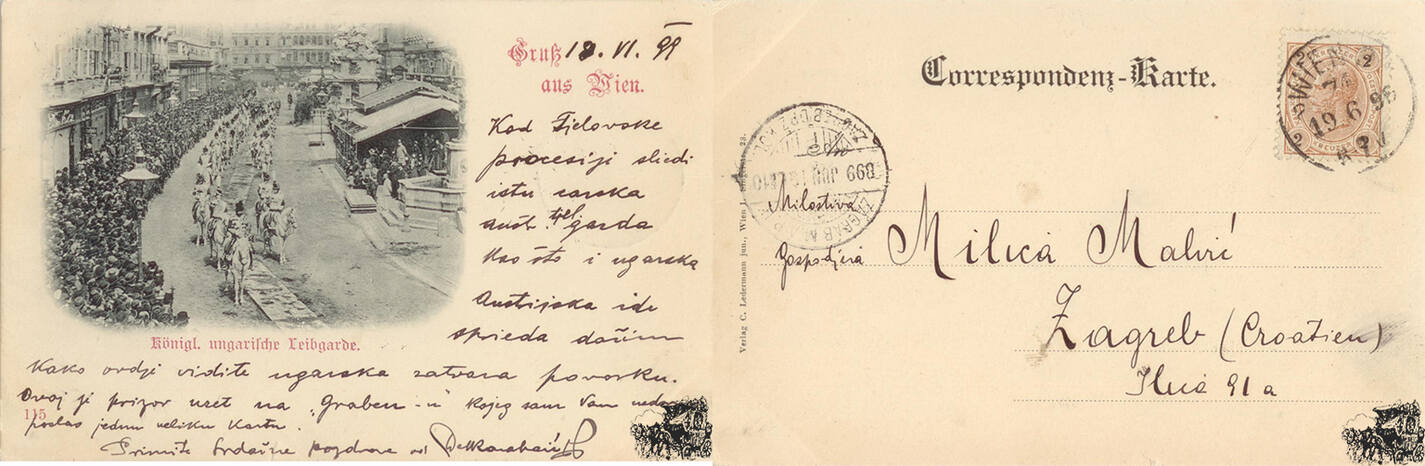 Gruß 18. VI. 99
aus Wien.
Kod Tjelovske
procesiji sliedi
istu carska
aust. tjel. garda
Kao što i ugarska
Austrijska ide
sprieda dočim
Königl. ungarische Leibgarde.
Kako ovdje vidite ugarska zatvara povorku.
Ovoj je prizor uzet na „Graben-u" kojeg sam Vam
115
poslao jednu veliku kartu.
Primite srdačne pozdrave od
Correspondenz-Karte.
2
WIEN
19 6 9
KREUZER
ZAGREB
899 JUN
Verlag C. Ledermann jun., Wien I.
Milostiva
Gospodjica Milica Malvić
Zagreb (Croatien)
Ilica 91a